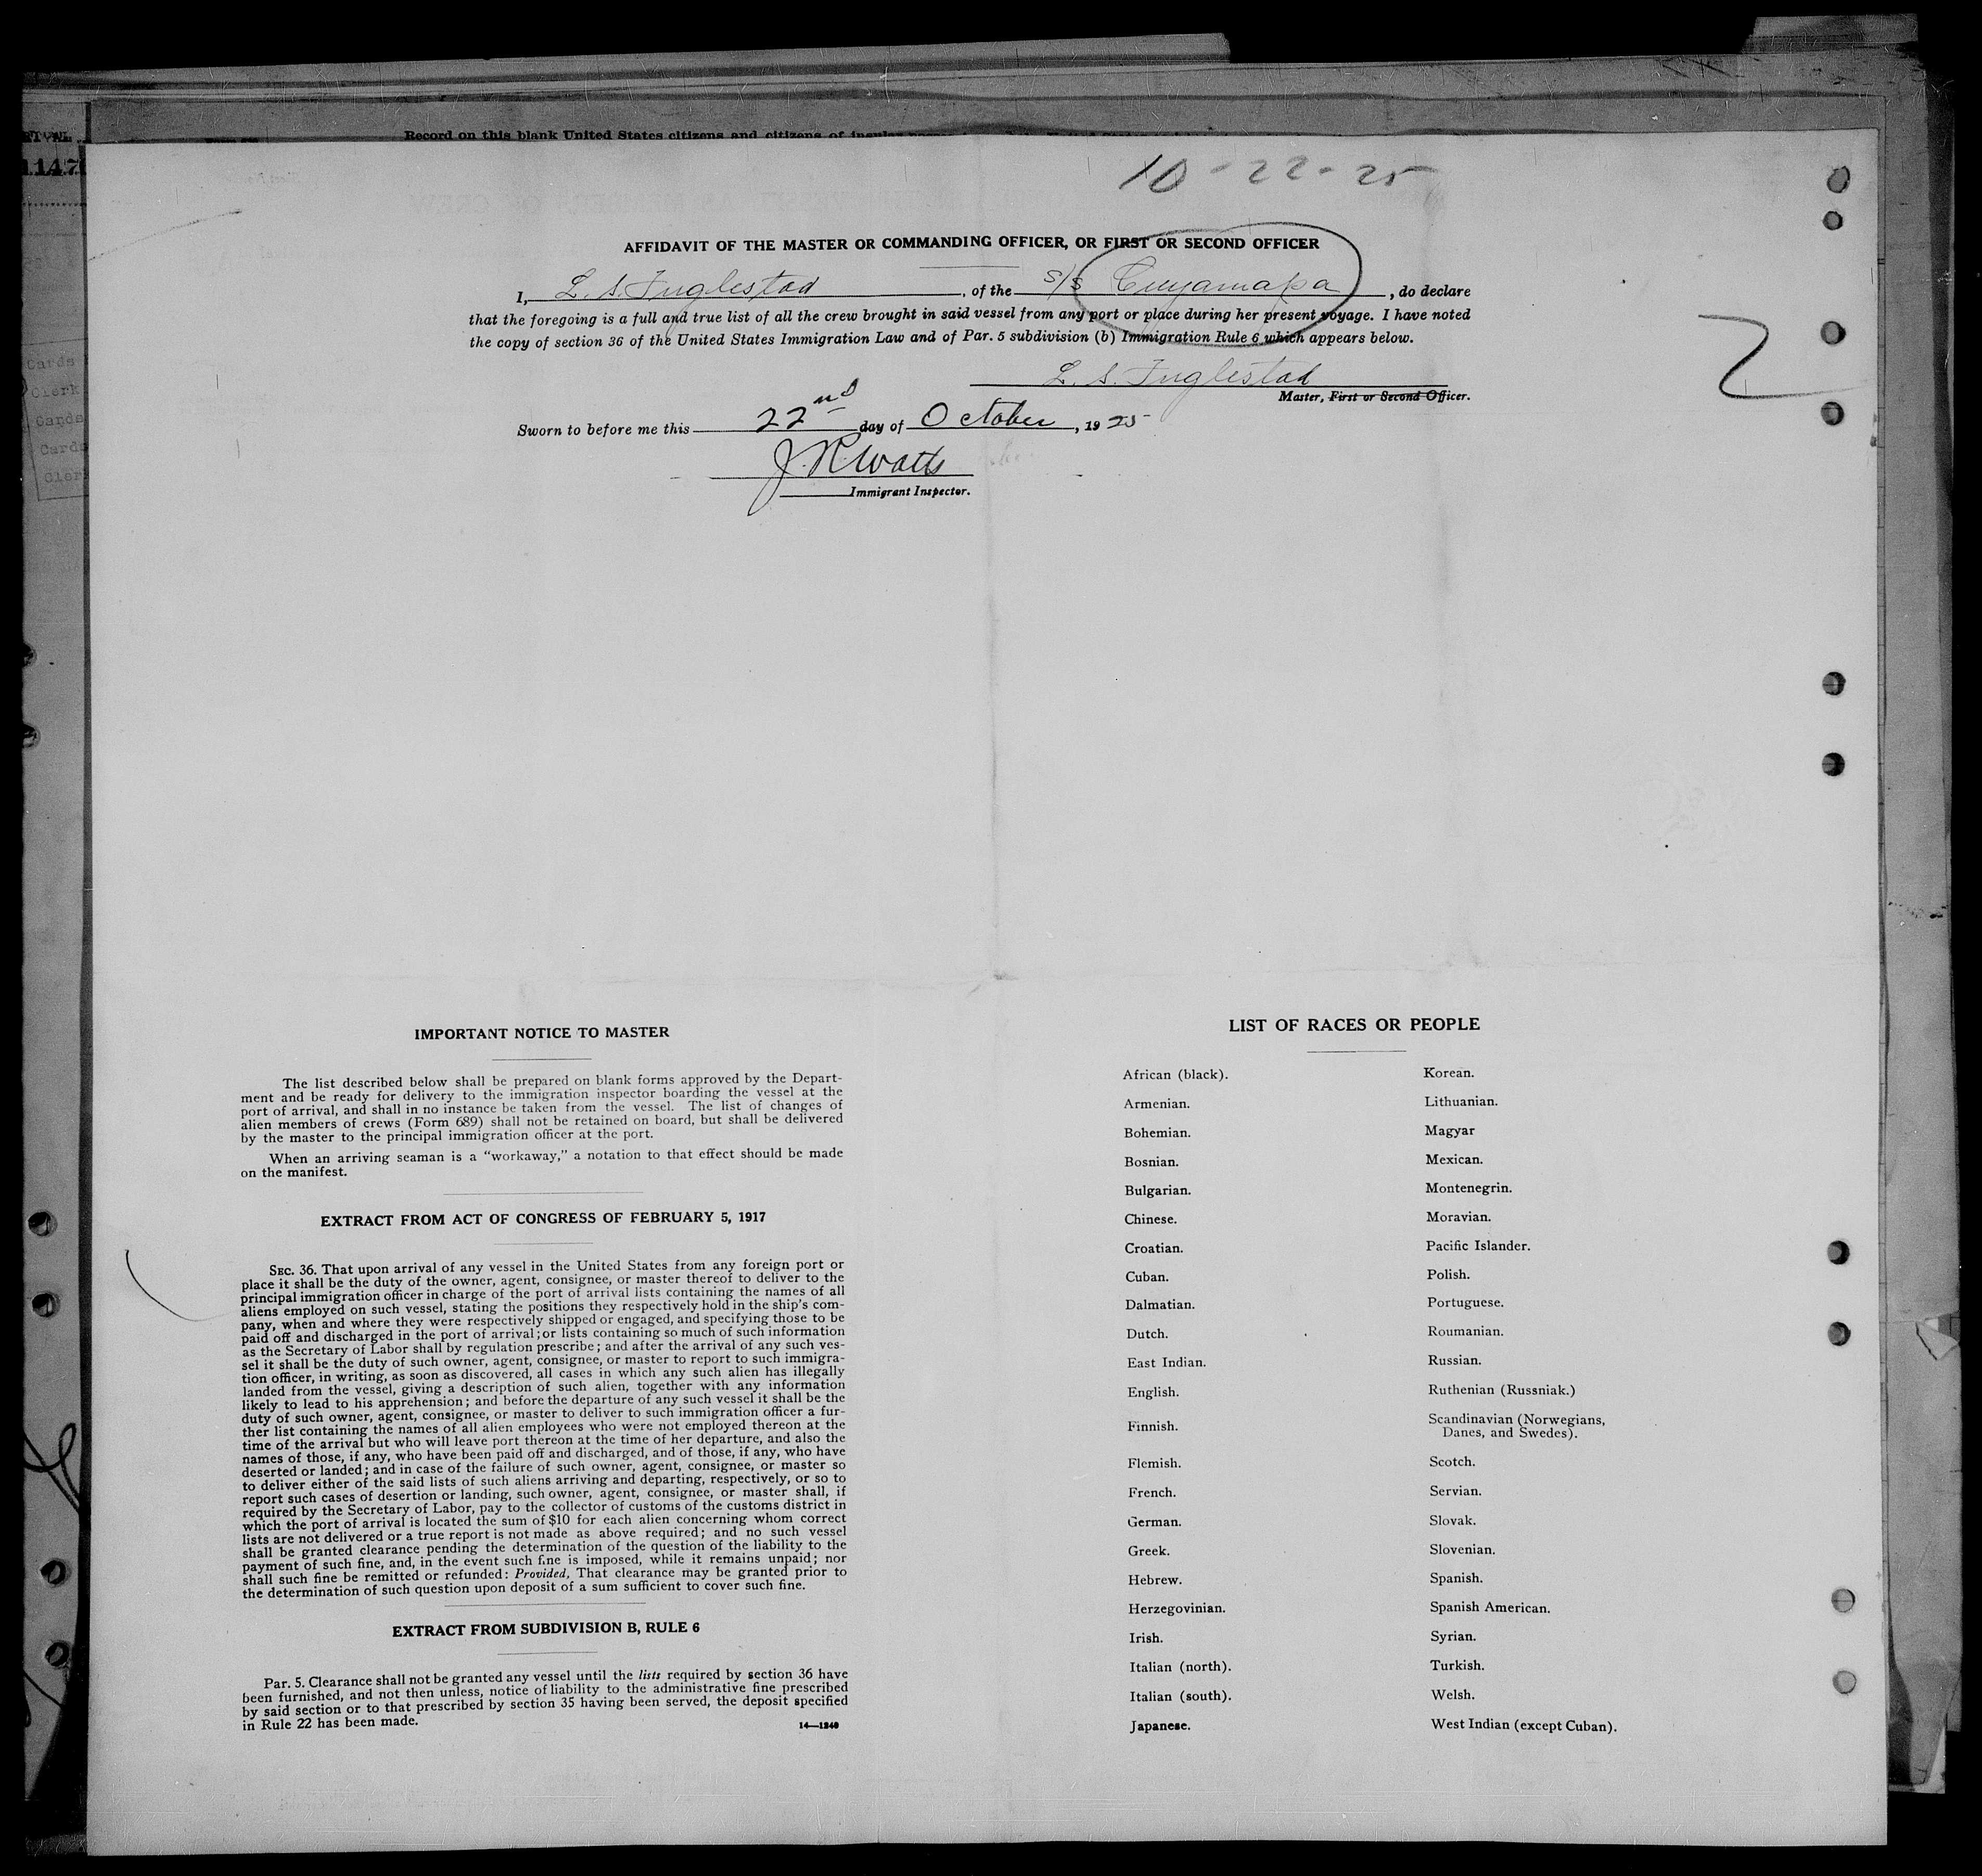 Record on this blank United States citizens and citizens of insular
1147
Cards
Clerk
Cards
Cards
Cler
10-22-25
AFFIDAVIT OF THE MASTER OR COMMANDING OFFICER, OR FIRST OR SECOND OFFICER
I, L. S. Inglestad, of the S/S Cuyamapa, do declare
that the foregoing is a full and true list of all the crew brought in said vessel from any port or place during her present voyage. I have noted
the copy of section 36 of the United States Immigration Law and of Par. 5 subdivision (b) Immigration Rule 6 which appears below.
L. S. Inglestad
Master, First or Second Officer.
Sworn to before me this 22nd day of October, 1925
J. R. Watts
Immigrant Inspector.
IMPORTANT NOTICE TO MASTER
The list described below shall be prepared on blank forms approved by the Depart-
ment and be ready for delivery to the immigration inspector boarding the vessel at the
port of arrival, and shall in no instance be taken from the vessel. The list of changes of
alien members of crews (Form 689) shall not be retained on board, but shall be delivered
by the master to the principal immigration officer at the port.
When an arriving seaman is a “workaway,” a notation to that effect should be made
on the manifest.
EXTRACT FROM ACT OF CONGRESS OF FEBRUARY 5, 1917
SEC. 36. That upon arrival of any vessel in the United States from any foreign port or
place it shall be the duty of the owner, agent, consignee, or master thereof to deliver to the
principal immigration officer in charge of the port of arrival lists containing the names of all
aliens employed on such vessel, stating the positions they respectively hold in the ship's com-
pany, when and where they were respectively shipped or engaged, and specifying those to be
paid off and discharged in the port of arrival; or lists containing so much of such information
as the Secretary of Labor shall by regulation prescribe; and after the arrival of any such ves-
sel it shall be the duty of such owner, agent, consignee, or master to report to such immigra-
tion officer, in writing, as soon as discovered, all cases in which any such alien has illegally
landed from the vessel, giving a description of such alien, together with any information
likely to lead to his apprehension; and before the departure of any such vessel it shall be the
duty of such owner, agent, consignee, or master to deliver to such immigration officer a fur-
ther list containing the names of all alien employees who were not employed thereon at the
time of the arrival but who will leave port thereon at the time of her departure, and also the
names of those, if any, who have been paid off and discharged, and of those, if any, who have
deserted or landed; and in case of the failure of such owner, agent, consignee, or master so
to deliver either of the said lists of such aliens arriving and departing, respectively, or so to
report such cases of desertion or landing, such owner, agent, consignee, or master shall, if
required by the Secretary of Labor, pay to the collector of customs of the customs district in
which the port of arrival is located the sum of $10 for each alien concerning whom correct
lists are not delivered or a true report is not made as above required; and no such vessel
shall be granted clearance pending the determination of the question of the liability to the
payment of such fine, and, in the event such fine is imposed, while it remains unpaid; nor
shall such fine be remitted or refunded: Provided, That clearance may be granted prior to
the determination of such question upon deposit of a sum sufficient to cover such fine.
EXTRACT FROM SUBDIVISION B, RULE 6
Par. 5. Clearance shall not be granted any vessel until the lists required by section 36 have
been furnished, and not then unless, notice of liability to the administrative fine prescribed
by said section or to that prescribed by section 35 having been served, the deposit specified
in Rule 22 has been made.
14—1240
LIST OF RACES OR PEOPLE
African (black).
Armenian.
Bohemian.
Bosnian.
Bulgarian.
Chinese.
Croatian.
Cuban.
Dalmatian.
Dutch.
East Indian.
English.
Finnish.
Flemish.
French.
German.
Greek.
Hebrew.
Herzegovinian.
Irish.
Italian (north).
Italian (south).
Japanese.
Korean.
Lithuanian.
Magyar
Mexican.
Montenegrin.
Moravian.
Pacific Islander.
Polish.
Portuguese.
Roumanian.
Russian.
Ruthenian (Russniak.)
Scandinavian (Norwegians,
Danes, and Swedes).
Scotch.
Servian.
Slovak.
Slovenian.
Spanish.
Spanish American.
Syrian.
Turkish.
Welsh.
West Indian (except Cuban).